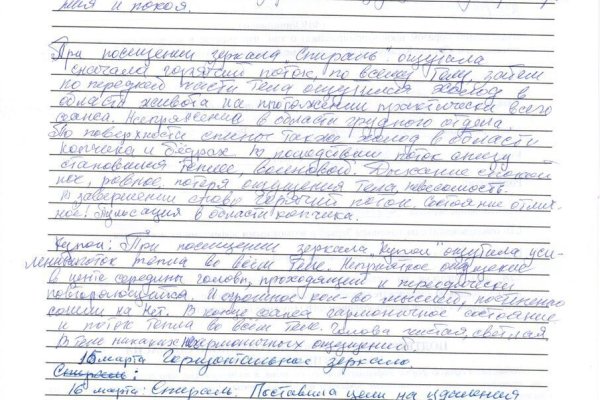 мия и покоя.
При посещении зеркала "Спираль" ощутила
сначала горячий поток, по всему телу, затем
по передней части тела ощущался холод в
области живота на протяжении практически всего
сеанса. Напряжение в области грудного отдела.
По поверхности спины также холод в области
копчика и бедрах. В последствии поток снизу
становился теплее, волновой. Дыхание спокой
ное, ровное, потеря ощущения тела, невесомость.
В завершении снова горячий поток. Состояние отлич-
ное. Пульсация в области копчика.
Купол: При посещении зеркала "Купол" ощутила уси-
ление поток тепла во всём теле. Неприятное ощущение
в центе середины головы, проходящий и переодически
повторяющийся. И огромное кол-во мыслей, постепенно
сошли на нет. В конце сеанса гармоничное состояние
и поток тепла во всём теле. Голова чистая, светлая
В теле никаких не гармоничных ощущений.
15 марта Горизонтальное зеркало.
Спираль:
16 марта: Спираль. Поставила цели на удаления